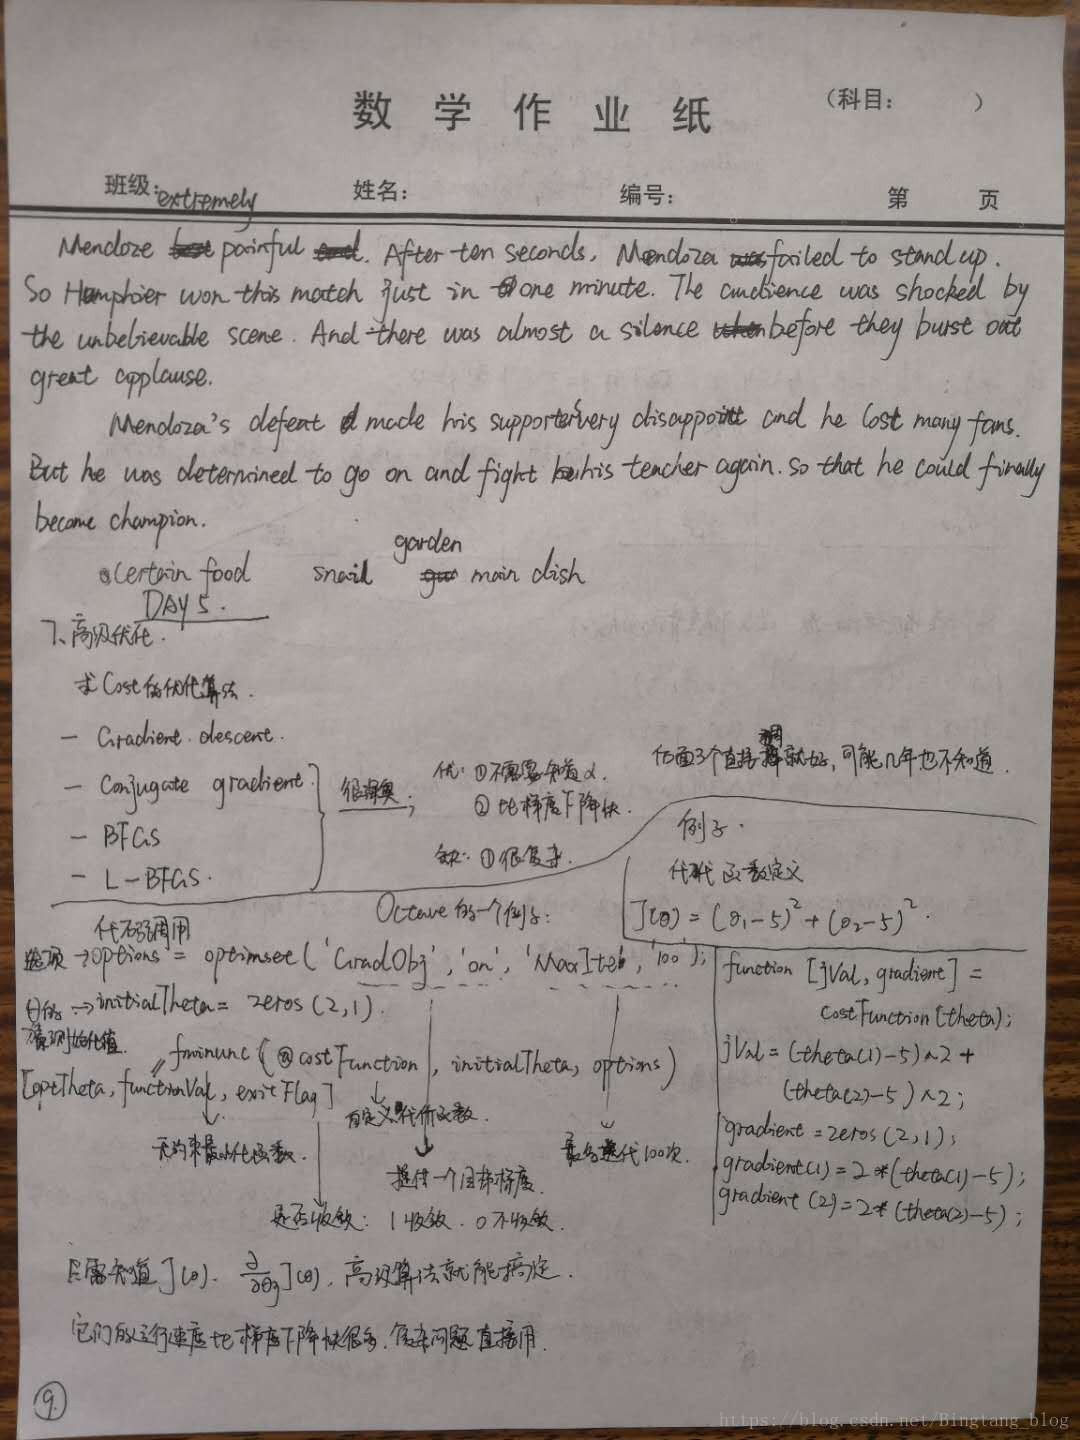 数学作业纸
（科目： ）
班级： 姓名： 编号： 第 页
extremely
Mendoze painful . After ten seconds, Mendoza failed to stand up.
So Humphier won this match just in one minute. The audience was shocked by
the unbelievable scene. And there was almost a silence before they burst out
great applause.
Mendoza's defeat made his supporters very disappoint and he lost many fans.
But he was determined to go on and fight his teacher again. so that he could finally
become champion.
certain food snail garden main dish
DAY 5.
7、高级优化.
求Cost的优化算法.
- Gradient descent.
- Conjugate gradient
- BFGS
- L-BFGS.
很深奥;
优: ①不需要知道α.
② 比梯度下降快.
缺: ①很复杂.
后面3个直接调就好, 可能几年也不知道.
例子.
代价函数定义
J(θ) = (θ1-5)^2 + (θ2-5)^2.
Octave的一个例子:
代码调用
选项→options = optimset('GradObj','on','MaxIter','100');
→initialTheta = zeros(2,1).
fminunc(@costFunction, initialTheta, options)
[optTheta, functionVal, exitFlag]
自定义代价函数.
无约束最小化函数.
提供一个目标梯度.
最多迭代100次.
是否收敛: 1收敛. 0不收敛.
function [jVal, gradient] =
costFunction(theta);
jVal = (theta(1)-5)^2 +
(theta(2)-5)^2;
gradient = zeros(2,1);
gradient(1) = 2*(theta(1)-5);
gradient(2) = 2*(theta(2)-5);
只需知道J(θ). ∂/∂θj J(θ), 高级算法就能搞定.
它们的运行速度比梯度下降快很多. 复杂问题直接用.
9.
https://blog.csdn.net/Bingtang_blog